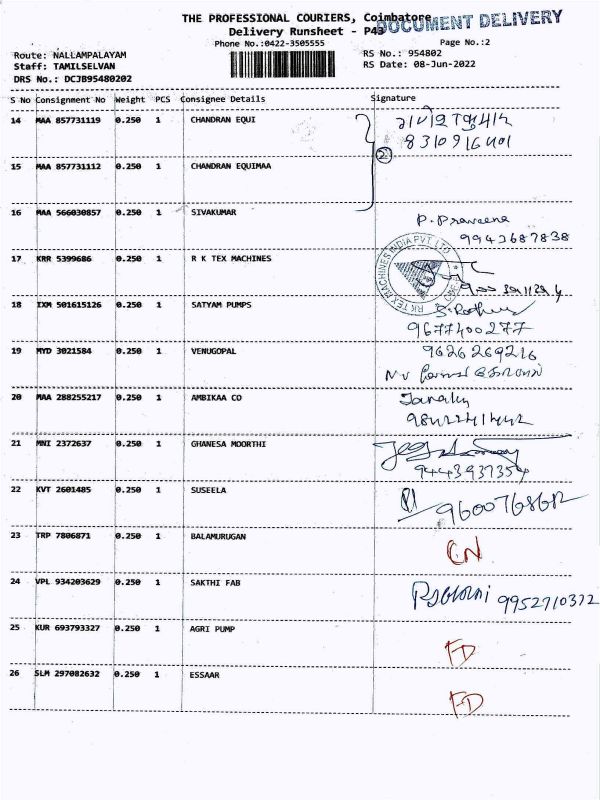 THE PROFESSIONAL COURIERS, Coimbatore
DOCUMENT DELIVERY
Delivery Runsheet - P43
Phone No.:0422-3505555
Page No.:2
Route: NALLAMPALAYAM
RS No.: 954802
Staff: TAMILSELVAN
RS Date: 08-Jun-2022
DRS No.: DCJB95480202
S No Consignment No Weight PCS Consignee Details Signature
14 MAA 857731119 0.250 1 CHANDRAN EQUI
15 MAA 857731112 0.250 1 CHANDRAN EQUIMAA
2
16 MAA 566030857 0.250 1 SIVAKUMAR P. Praveena
9943687838
17 KRR 5399686 0.250 1 R K TEX MACHINES
RK TEX MACHINES INDIA PVT LTD
18 IXM 501615126 0.250 1 SATYAM PUMPS
9677400277
19 MYD 3021584 0.250 1 VENUGOPAL 9626269216
20 MAA 288255217 0.250 1 AMBIKAA CO
21 MNI 2372637 0.250 1 GHANESA MOORTHI
9443937354
22 KVT 2601485 0.250 1 SUSEELA
9600768612
23 TRP 7806871 0.250 1 BALAMURUGAN CN
24 VPL 934203629 0.250 1 SAKTHI FAB 9952710372
25 KUR 693793327 0.250 1 AGRI PUMP FD
26 SLM 297082632 0.250 1 ESSAAR FD